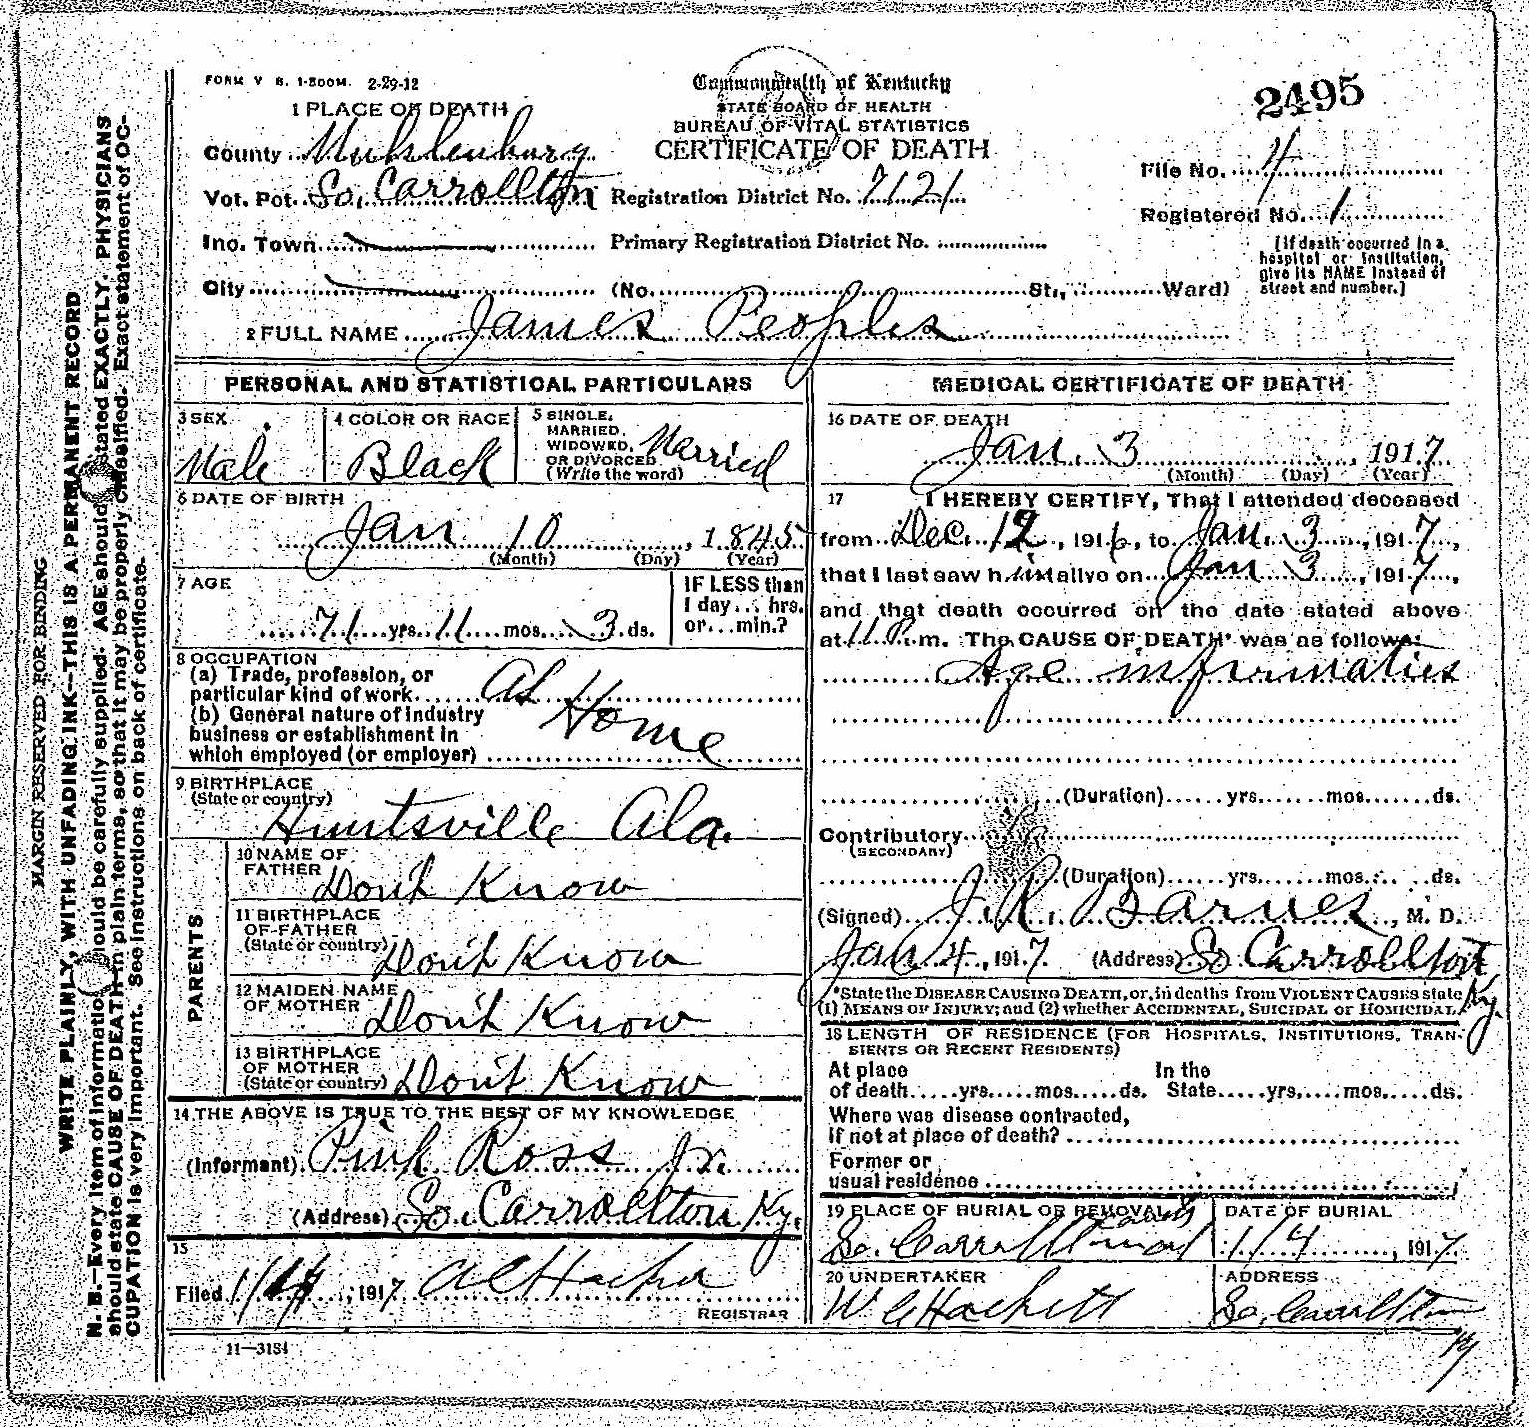 FORM V B. 1-800M. 2-29-12
Commonwealth of Kentucky
STATE BOARD OF HEALTH
BUREAU OF VITAL STATISTICS
CERTIFICATE OF DEATH
2495
1 PLACE OF DEATH
County Muhlenburg
Vot. Pct. So. Carrollton
Registration District No. 7121
File No. 4
Registered No. 1
Inc. Town
Primary Registration District No.
City
(No. St., Ward)
[If death occurred in a
hospital or institution,
give its NAME instead of
street and number.]
2 FULL NAME James Peoples
PERSONAL AND STATISTICAL PARTICULARS
3 SEX
Male
4 COLOR OR RACE
Black
5 SINGLE,
MARRIED,
WIDOWED,
OR DIVORCED
(Write the word)
Married
6 DATE OF BIRTH
Jan 10, 1845
(Month) (Day) (Year)
7 AGE
71 yrs. 11 mos. 3 ds.
IF LESS than
1 day... hrs.
or...min.?
8 OCCUPATION
(a) Trade, profession, or
particular kind of work At
(b) General nature of industry
business or establishment in
which employed (or employer)
Home
9 BIRTHPLACE
(State or country)
Huntsville Ala.
PARENTS
10 NAME OF
FATHER
Don't Know
11 BIRTHPLACE
OF FATHER
(State or country)
Don't Know
12 MAIDEN NAME
OF MOTHER
Don't Know
13 BIRTHPLACE
OF MOTHER
(State or country)
Don't Know
14 THE ABOVE IS TRUE TO THE BEST OF MY KNOWLEDGE
(Informant) Pink Ross Jr.
(Address) So. Carrollton Ky.
15
Filed 1/ , 1917
REGISTRAR
11—3184
MEDICAL CERTIFICATE OF DEATH
16 DATE OF DEATH
Jan. 3, 1917
(Month) (Day) (Year)
17 I HEREBY CERTIFY, That I attended deceased
from Dec. 12, 1916, to Jan. 3, 1917,
that I last saw him alive on Jan 3, 1917,
and that death occurred on the date stated above
at 11 P.m. The CAUSE OF DEATH* was as follows:
Age infirmaties
(Duration) yrs. mos. ds.
Contributory
(SECONDARY)
(Duration) yrs. mos. ds.
(Signed) J. R. Barnes, M. D.
Jan 4, 1917. (Address) So Carrollton Ky.
*State the DISEASE CAUSING DEATH, or, in deaths from VIOLENT CAUSES state
(1) MEANS OF INJURY; and (2) whether ACCIDENTAL, SUICIDAL or HOMICIDAL.
18 LENGTH OF RESIDENCE (FOR HOSPITALS, INSTITUTIONS, TRAN-
SIENTS OR RECENT RESIDENTS)
At place of death.....yrs.....mos.....ds. In the State.....yrs.....mos.....ds.
Where was disease contracted,
If not at place of death?
Former or
usual residence
19 PLACE OF BURIAL OR REMOVAL
So. Carrollton
DATE OF BURIAL
1/4, 1917.
20 UNDERTAKER
W C Hackett
ADDRESS
So. Carrollton
Ky
MARGIN RESERVED FOR BINDING
WRITE PLAINLY, WITH UNFADING INK—THIS IS A PERMANENT RECORD
N. B.—Every item of information should be carefully supplied. AGE should be stated EXACTLY. PHYSICIANS
should state CAUSE OF DEATH in plain terms, so that it may be properly classified. Exact statement of OC-
CUPATION is very important. See instructions on back of certificate.